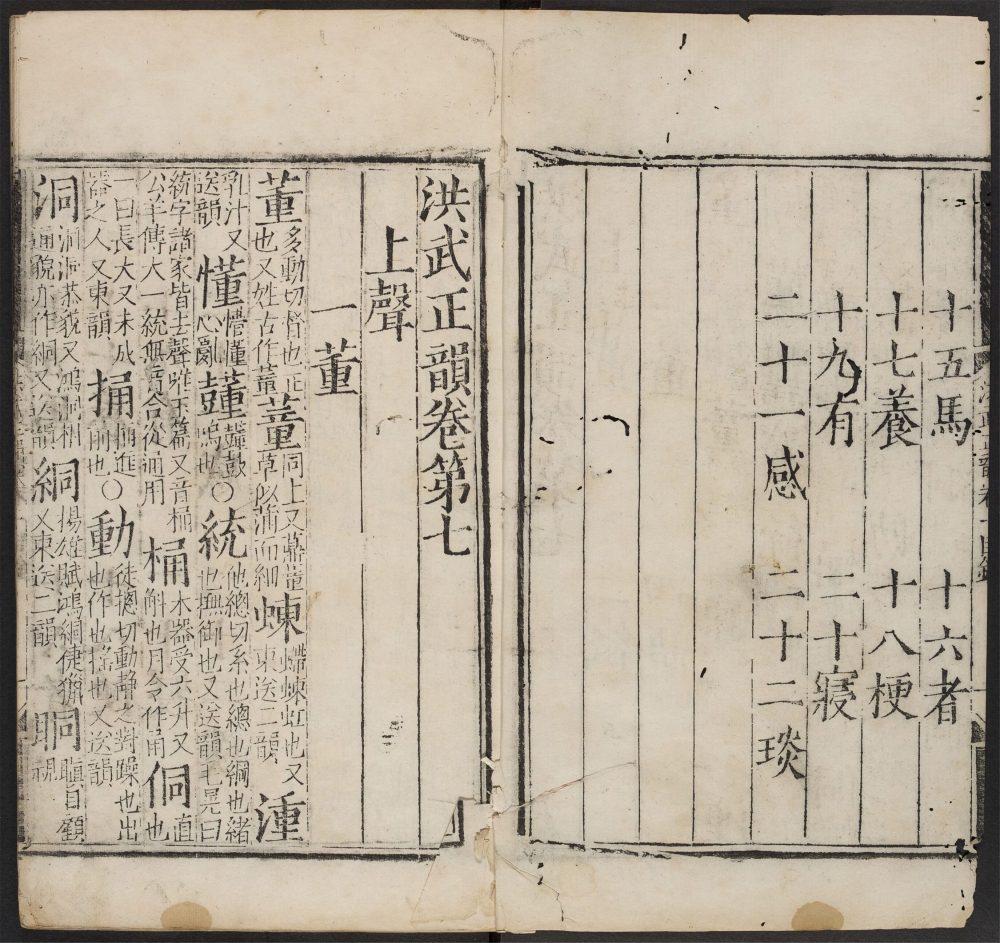 十五馬 十六者
十七養 十八梗
十九有 二十寢
二十一感 二十二琰
洪武正韻卷第七
上聲
一董
董 多動切督也正也又姓古作蕫 蕫 同上又薡蕫草似蒲而細 蝀 螮蝀虹也又東送二韻 湩
乳汁又送韻 懂 懵懂心亂 鼓鳴也〇 統 他總切系也總也綱也緒也撫御也又送韻毛晃曰
統字諸家皆去聲唯玉篇又音桶公羊傳大一統無音合從通用 桶 木器受六升又斛也月令作甬 侗 直也
一曰長大又未成器之人又東韻 捅 捅進前也〇 動 徒摠切動靜之對躁也出也作也搖也又送韻
洞 洞洞恭貌又鴻洞相通貌亦作絧又送韻 絧 揚雄賦鴻絧緁獵又東送二韻 眮 瞋目顧視